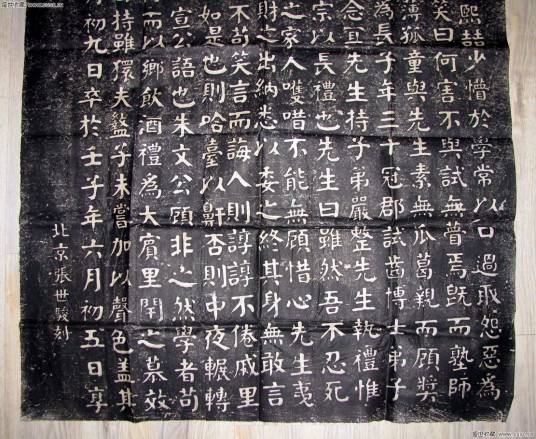 熙喆少懵於學常以口過取怨惡為
笑曰何害不與試無瞢焉既而塾師
溥孤童與先生素無瓜葛親而顧獎
為長子年三十冠郡試齒博士弟子
念宜先生持子弟嚴整先生執禮惟
宗以長禮也先生曰雖然吾不忍死
之家人嚄唶不能無顧惜心先生夷
財之出納悉以委之終其身無敢言
不苟笑言而誨人則諄諄不倦戚里
如是也則哈臺以鼾否則中夜輾轉
宣公語也朱文公顧非之然學者苟
而以鄉飲酒禮為大賓里閈之慕效
持雖獧夫盭子未嘗加以聲色蓋其
初九日卒於壬子年六月初五日享
北京張世駿刻
盛世收藏 www.sssc.cn
盛世收藏 www.sssc.cn